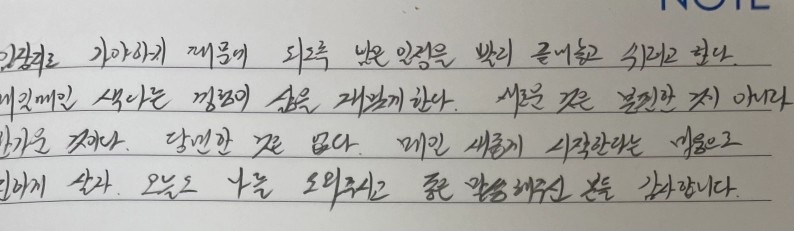 NOTE
일찍 가야하기 때문에 되도록 남은 일정을 빨리 끝내놓고 쉬려고 한다.
매일매일 색다른 경험이 삶을 재밌게 한다. 새로운 것은 불편한 것이 아니라
반가운 것이다. 당연한 것은 없다. 매일 새롭게 시작한다는 마음으로
하게 살자. 오늘도 나를 도와주시고 좋은 말씀해주신 분들 감사합니다.